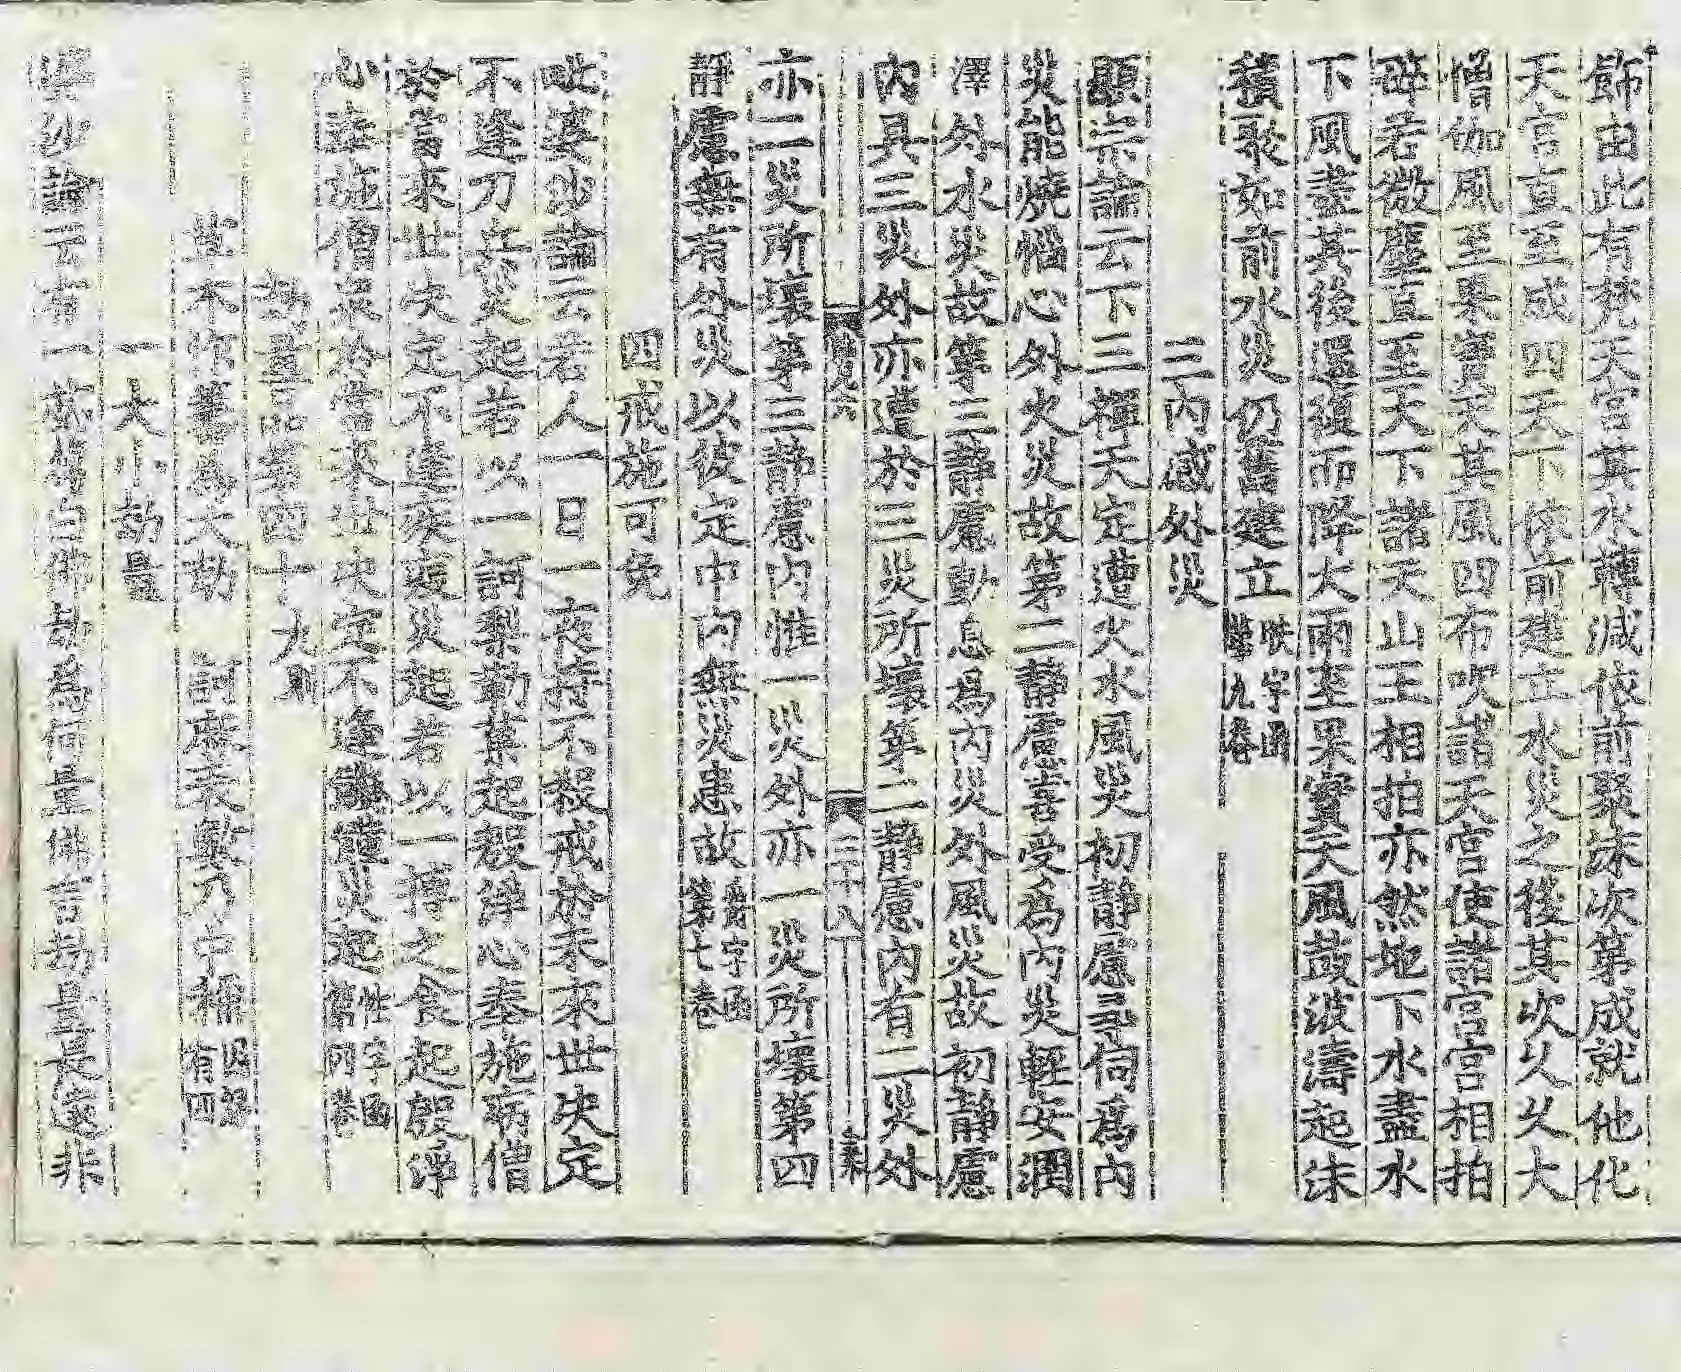 飾由此有梵天宮其水轉減依前聚沫次第成就他化
天宮直至成四天下依前建立水災之後其次久久大
僧伽風至果實天其風四布吹諸天宮使諸宮宮相拍
碎若微塵直至天下諸天山王相拍亦然地下水盡水
下風盡其後還復而降大雨至果實天風鼓波濤起沫
積聚如前水災仍舊建立
三內感外災
顯宗論云下三種天定遭火水風災初靜慮尋伺為內
災能燒惱心外火災故第二靜慮喜受為內災輕安潤
澤外水災故第三靜慮動息為內災外風災故初靜慮
內具三災外亦遭於三災所壞第二靜慮內有二災外
二十八
亦二災所壞第三靜慮內惟一災外亦一災所壞第四
靜慮無有外災以彼定中內無災患故 第十卷
四戒施可免
毗婆沙論云若人一日一夜持不殺戒於未來世決定
不逢刀兵災起若以一訶梨勒菓起殷淨心奉施病僧
於當來世決定不逢疾疫災起若以一摶之食起殷淨
心奉施僧眾於當來世決定不逢饑饉災起 性字函第四卷
劫量品第四十 九則
一大小劫量